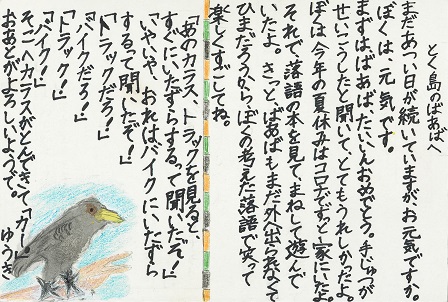 とく島のばあばへ
まだあつい日が続いていますがお元気ですか。
ぼくは、元気です。
まずは、ばあば、たいいんおめでとう。手じゅつが
せいこうしたと聞いて、とてもうれしかったよ。
ぼくは、今年の夏休みはコロナでずっと家にいたよ。
それで、落語の本を見て、まねして遊んで
いたよ。きっと、ばあばもまだ外に出られなくて
ひまだろうから、ぼくの考えた落語で笑って
楽しくすごしてね。
「あのカラス、トラックを見ると
すぐにいたずらするって聞いたぞ！」
「いやいや、おれは、バイクにいたずら
するって聞いたぞ！」
「トラックだろ！」
「バイクだろ！」
「トラック！」
「バイク！」
そこへカラスがとんできて、「カー」
おあとがよろしいようで。
ゆうき